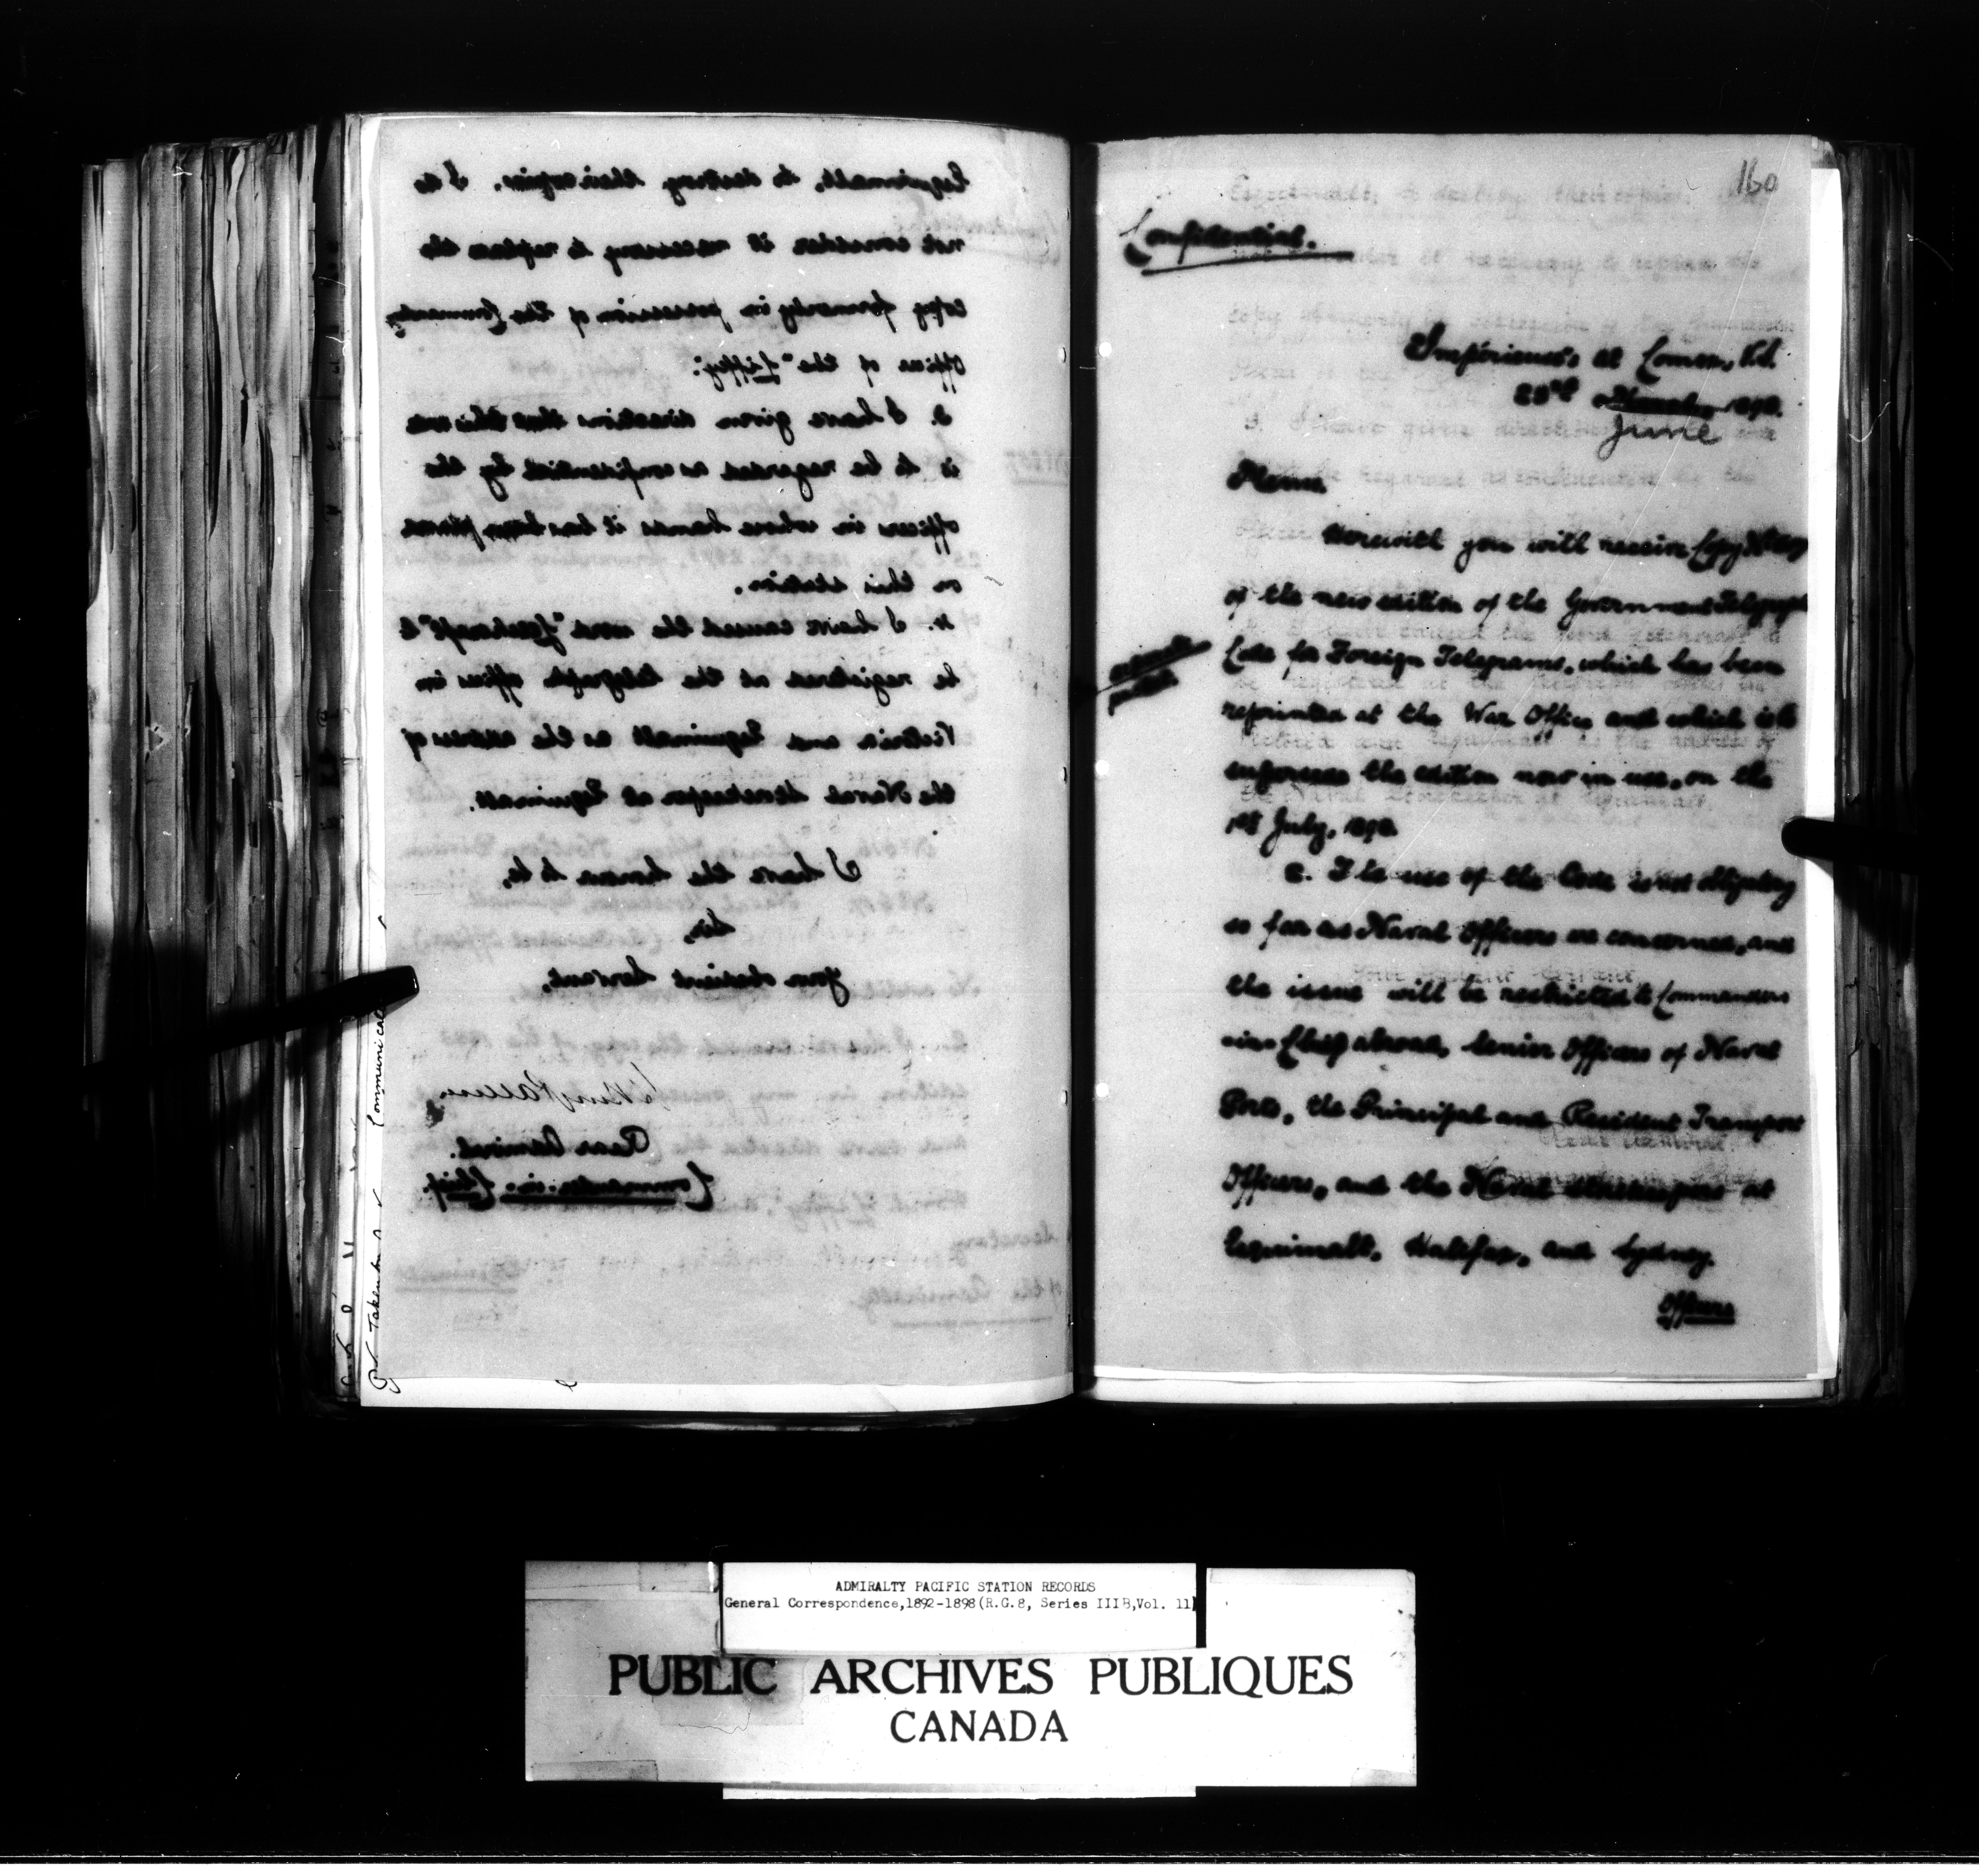 Esquimalt, to destroy their copies. I do
not consider it necessary to replace the
copy formerly in possession of the Commanding
Officer of the "Liffey".
3. I have given directions that this one
is to be regarded as confidential by the
officers in whose hands it has been placed
on this station.
4. I have caused the word
be registered at the telegraph offices in
Victoria and Esquimalt as the address of
the Naval Storekeeper at Esquimalt.
I have the honour to be,
Sir,
Your obedient Servant,
Rear Admiral.
Commander-in-Chief.
160
Confidential.
Imperieuse, at Comox, V.I.
June
Memo.
Herewith you will receive Copy
of the new edition of the Government Telegraph
Code for Foreign Telegrams, which has been
reprinted at the War Office and which is to
supersede the edition now in use, on the
1st July,
2. The use of the Code is not obligatory
so far as Naval Officers are concerned, and
the issue will be restricted to Commanders
-in-Chief abroad, Senior Officers of Naval
Ports, the Principal and Resident Transport
Officers, and the Naval Storekeepers at
Esquimalt, Halifax, and Sydney.
Officers
ADMIRALTY PACIFIC STATION RECORDS
General Correspondence,1892-1898(R.G.8, Series IIIB,Vol. 11)
PUBLIC ARCHIVES PUBLIQUES
CANADA